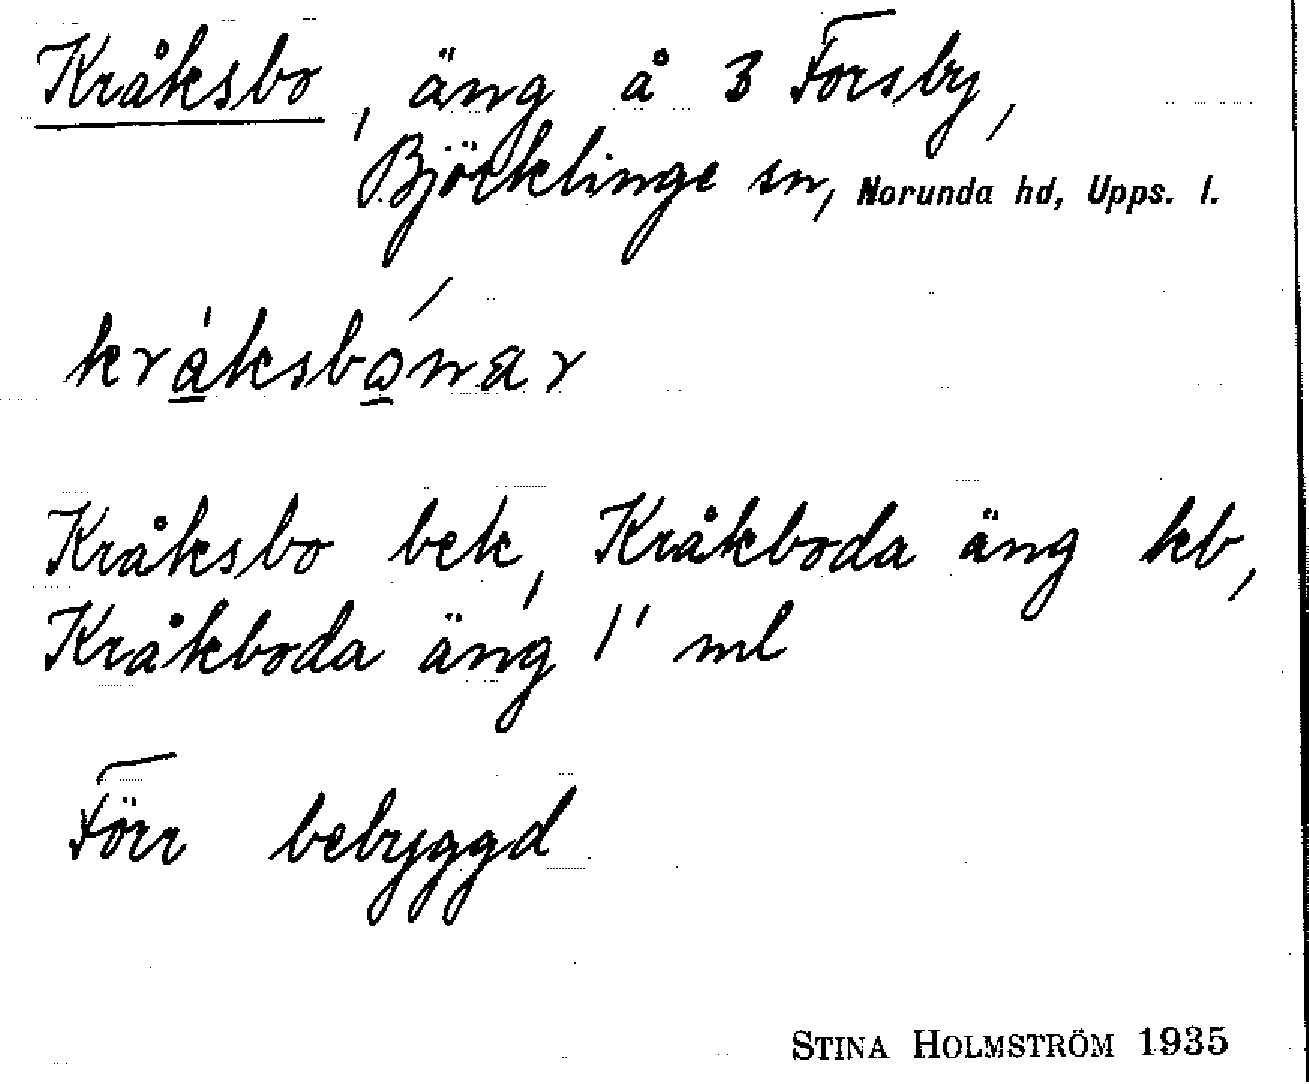 Kråksbo, äng å 3 Forsby,
Björklinge sn, Norunda hd, Upps. l.
kråksbonar
Kråksbo bek, Kråkboda äng kb,
Kråkboda äng 1' ml
Förr bebyggd
STINA HOLMSTRÖM 1935